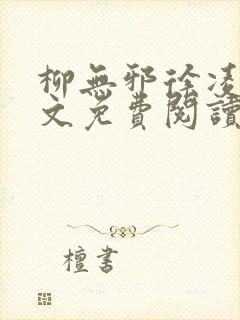 柳無邪徐凌
文免費閱讀
檀書